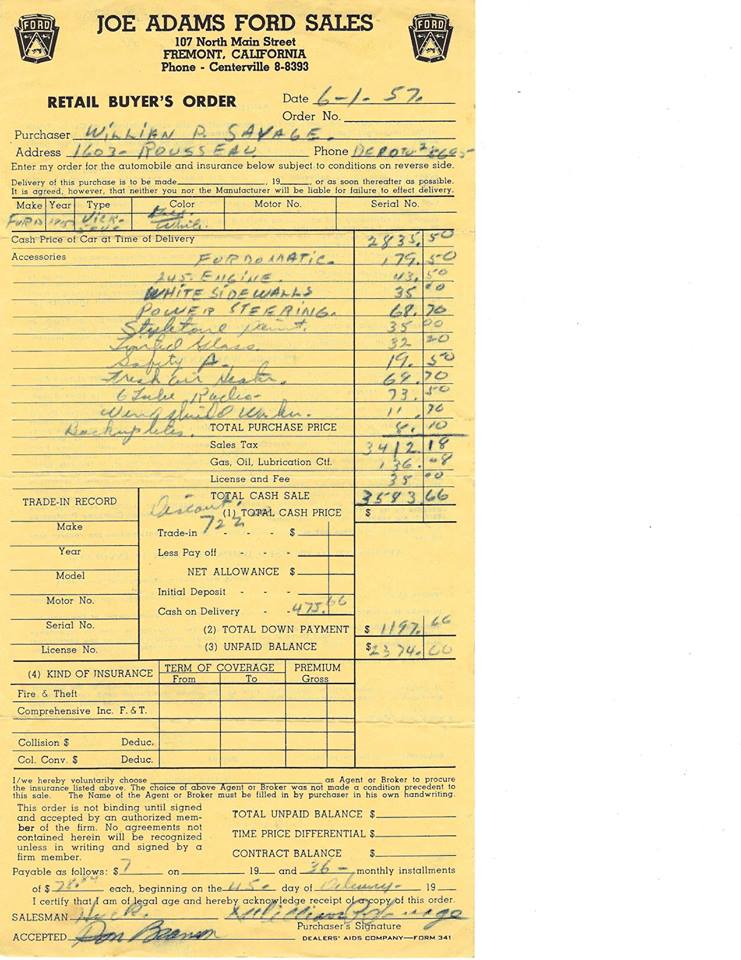 FORD
FORD
JOE ADAMS FORD SALES
107 North Main Street
FREMONT, CALIFORNIA
Phone - Centerville 8-8393
RETAIL BUYER'S ORDER
Date 6-1-57.
Order No.
Purchaser WILLIAN P. SAVAGE.
Address 1603- ROUSSEAU Phone
Enter my order for the automobile and insurance below subject to conditions on reverse side.
Delivery of this purchase is to be made , 19 , or as soon thereafter as possible.
It is agreed, however, that neither you nor the Manufacturer will be liable for failure to effect delivery.
Make Year Type Color Motor No. Serial No.
FORD 1957 White
Cash Price of Car at Time of Delivery 2835.50
Accessories FORDOMATIC. 179.50
245. ENGINE. 43.50
WHITE SIDEWALLS 35 00
POWER STEERING. 68.70
Styletone paint. 35 00
Tinted Glass. 32 20
Safety A. 19.50
Fresh Air Heater. 69.70
6 Tube Radio- 73.50
Windshield Washer. 11.70
Backuplites. TOTAL PURCHASE PRICE 8.10
Sales Tax 3412.18
Gas, Oil, Lubrication Ctf. 136.08
License and Fee 35 00
TOTAL CASH SALE 3583 66
TRADE-IN RECORD
Discount. (1) TOTAL CASH PRICE $
722
Make Trade-in - - - $
Year Less Pay off - - -
Model NET ALLOWANCE $
Motor No. Initial Deposit - - -
Cash on Delivery - - 475.66
Serial No. (2) TOTAL DOWN PAYMENT $ 1197.66
License No. (3) UNPAID BALANCE $2374.00
(4) KIND OF INSURANCE TERM OF COVERAGE PREMIUM
From To Gross
Fire & Theft
Comprehensive Inc. F. & T.
Collision $ Deduc.
Col. Conv. $ Deduc.
I/we hereby voluntarily choose as Agent or Broker to procure
the insurance listed above. The choice of above Agent or Broker was not made a condition precedent to
this sale. The Name of the Agent or Broker must be filled in by purchaser in his own handwriting.
This order is not binding until signed
and accepted by an authorized mem-
ber of the firm. No agreements not
contained herein will be recognized
unless in writing and signed by a
firm member.
TOTAL UNPAID BALANCE $
TIME PRICE DIFFERENTIAL $
CONTRACT BALANCE $
Payable as follows: $ on 19 and 36- monthly installments
of $ each, beginning on the day of 19
I certify that I am of legal age and hereby acknowledge receipt of a copy of this order.
SALESMAN William P Savage
Purchaser's Signature
ACCEPTED Don
DEALERS' AIDS COMPANY—FORM 341